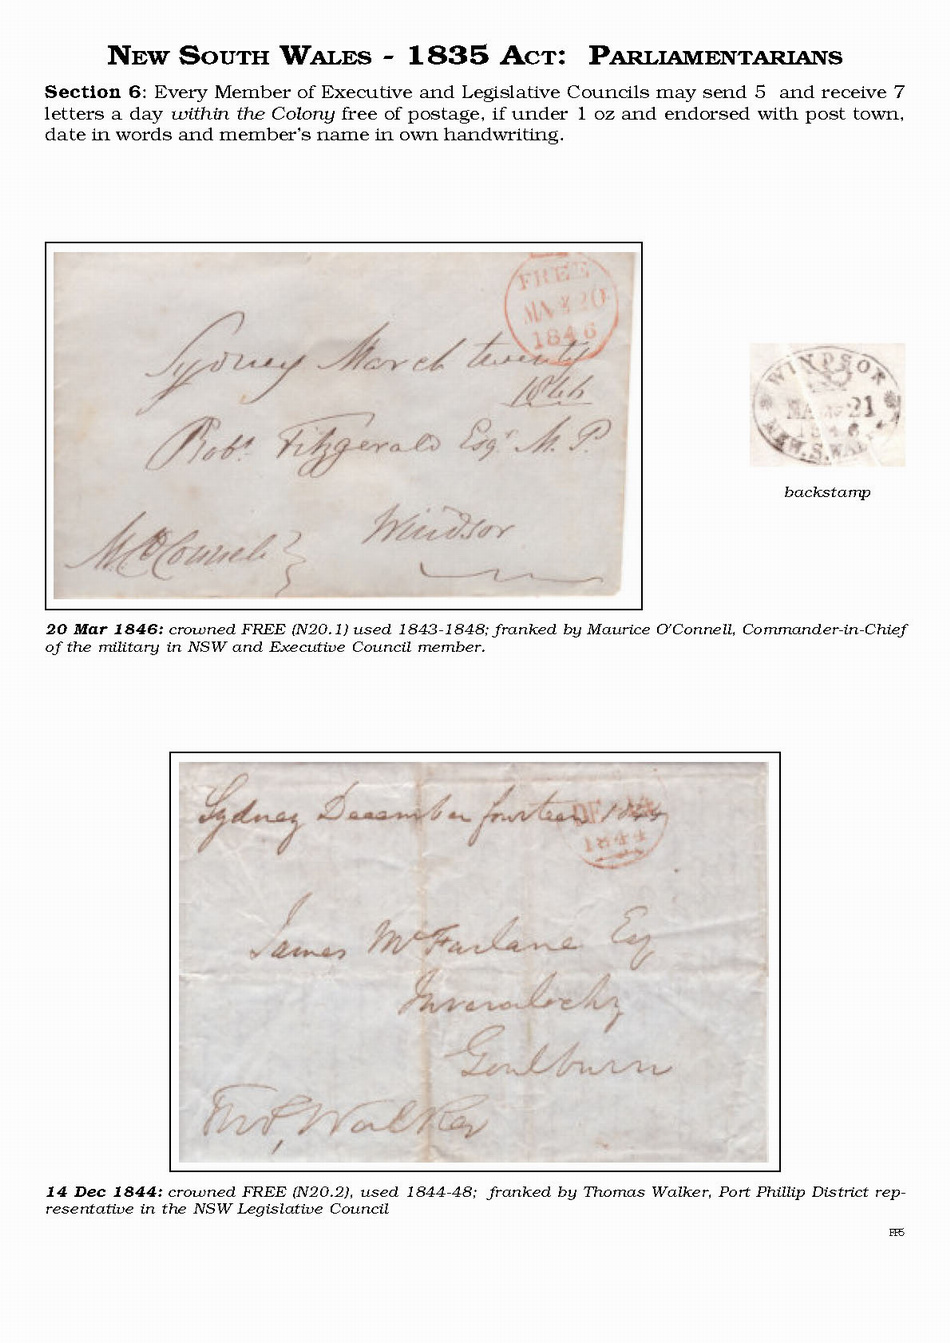 NEW SOUTH WALES - 1835 ACT: PARLIAMENTARIANS
Section 6: Every Member of Executive and Legislative Councils may send 5 and receive 7
letters a day within the Colony free of postage, if under 1 oz and endorsed with post town,
date in words and member's name in own handwriting.
FREE
MA 20
1846
Sydney March twenty
1846
Robt Fitzgerald Esqr M.P.
Windsor
M O'Connell
WINDSOR
MAR 21
1846
NEW.S.WAL
backstamp
20 Mar 1846: crowned FREE (N20.1) used 1843-1848; franked by Maurice O'Connell, Commander-in-Chief
of the military in NSW and Executive Council member.
Sydney December fourteen 1844
DE
1844
James McFarlane Esq
Inveralochy
Goulburn
Thos Walker
14 Dec 1844: crowned FREE (N20.2), used 1844-48; franked by Thomas Walker, Port Phillip District rep-
resentative in the NSW Legislative Council
FP5